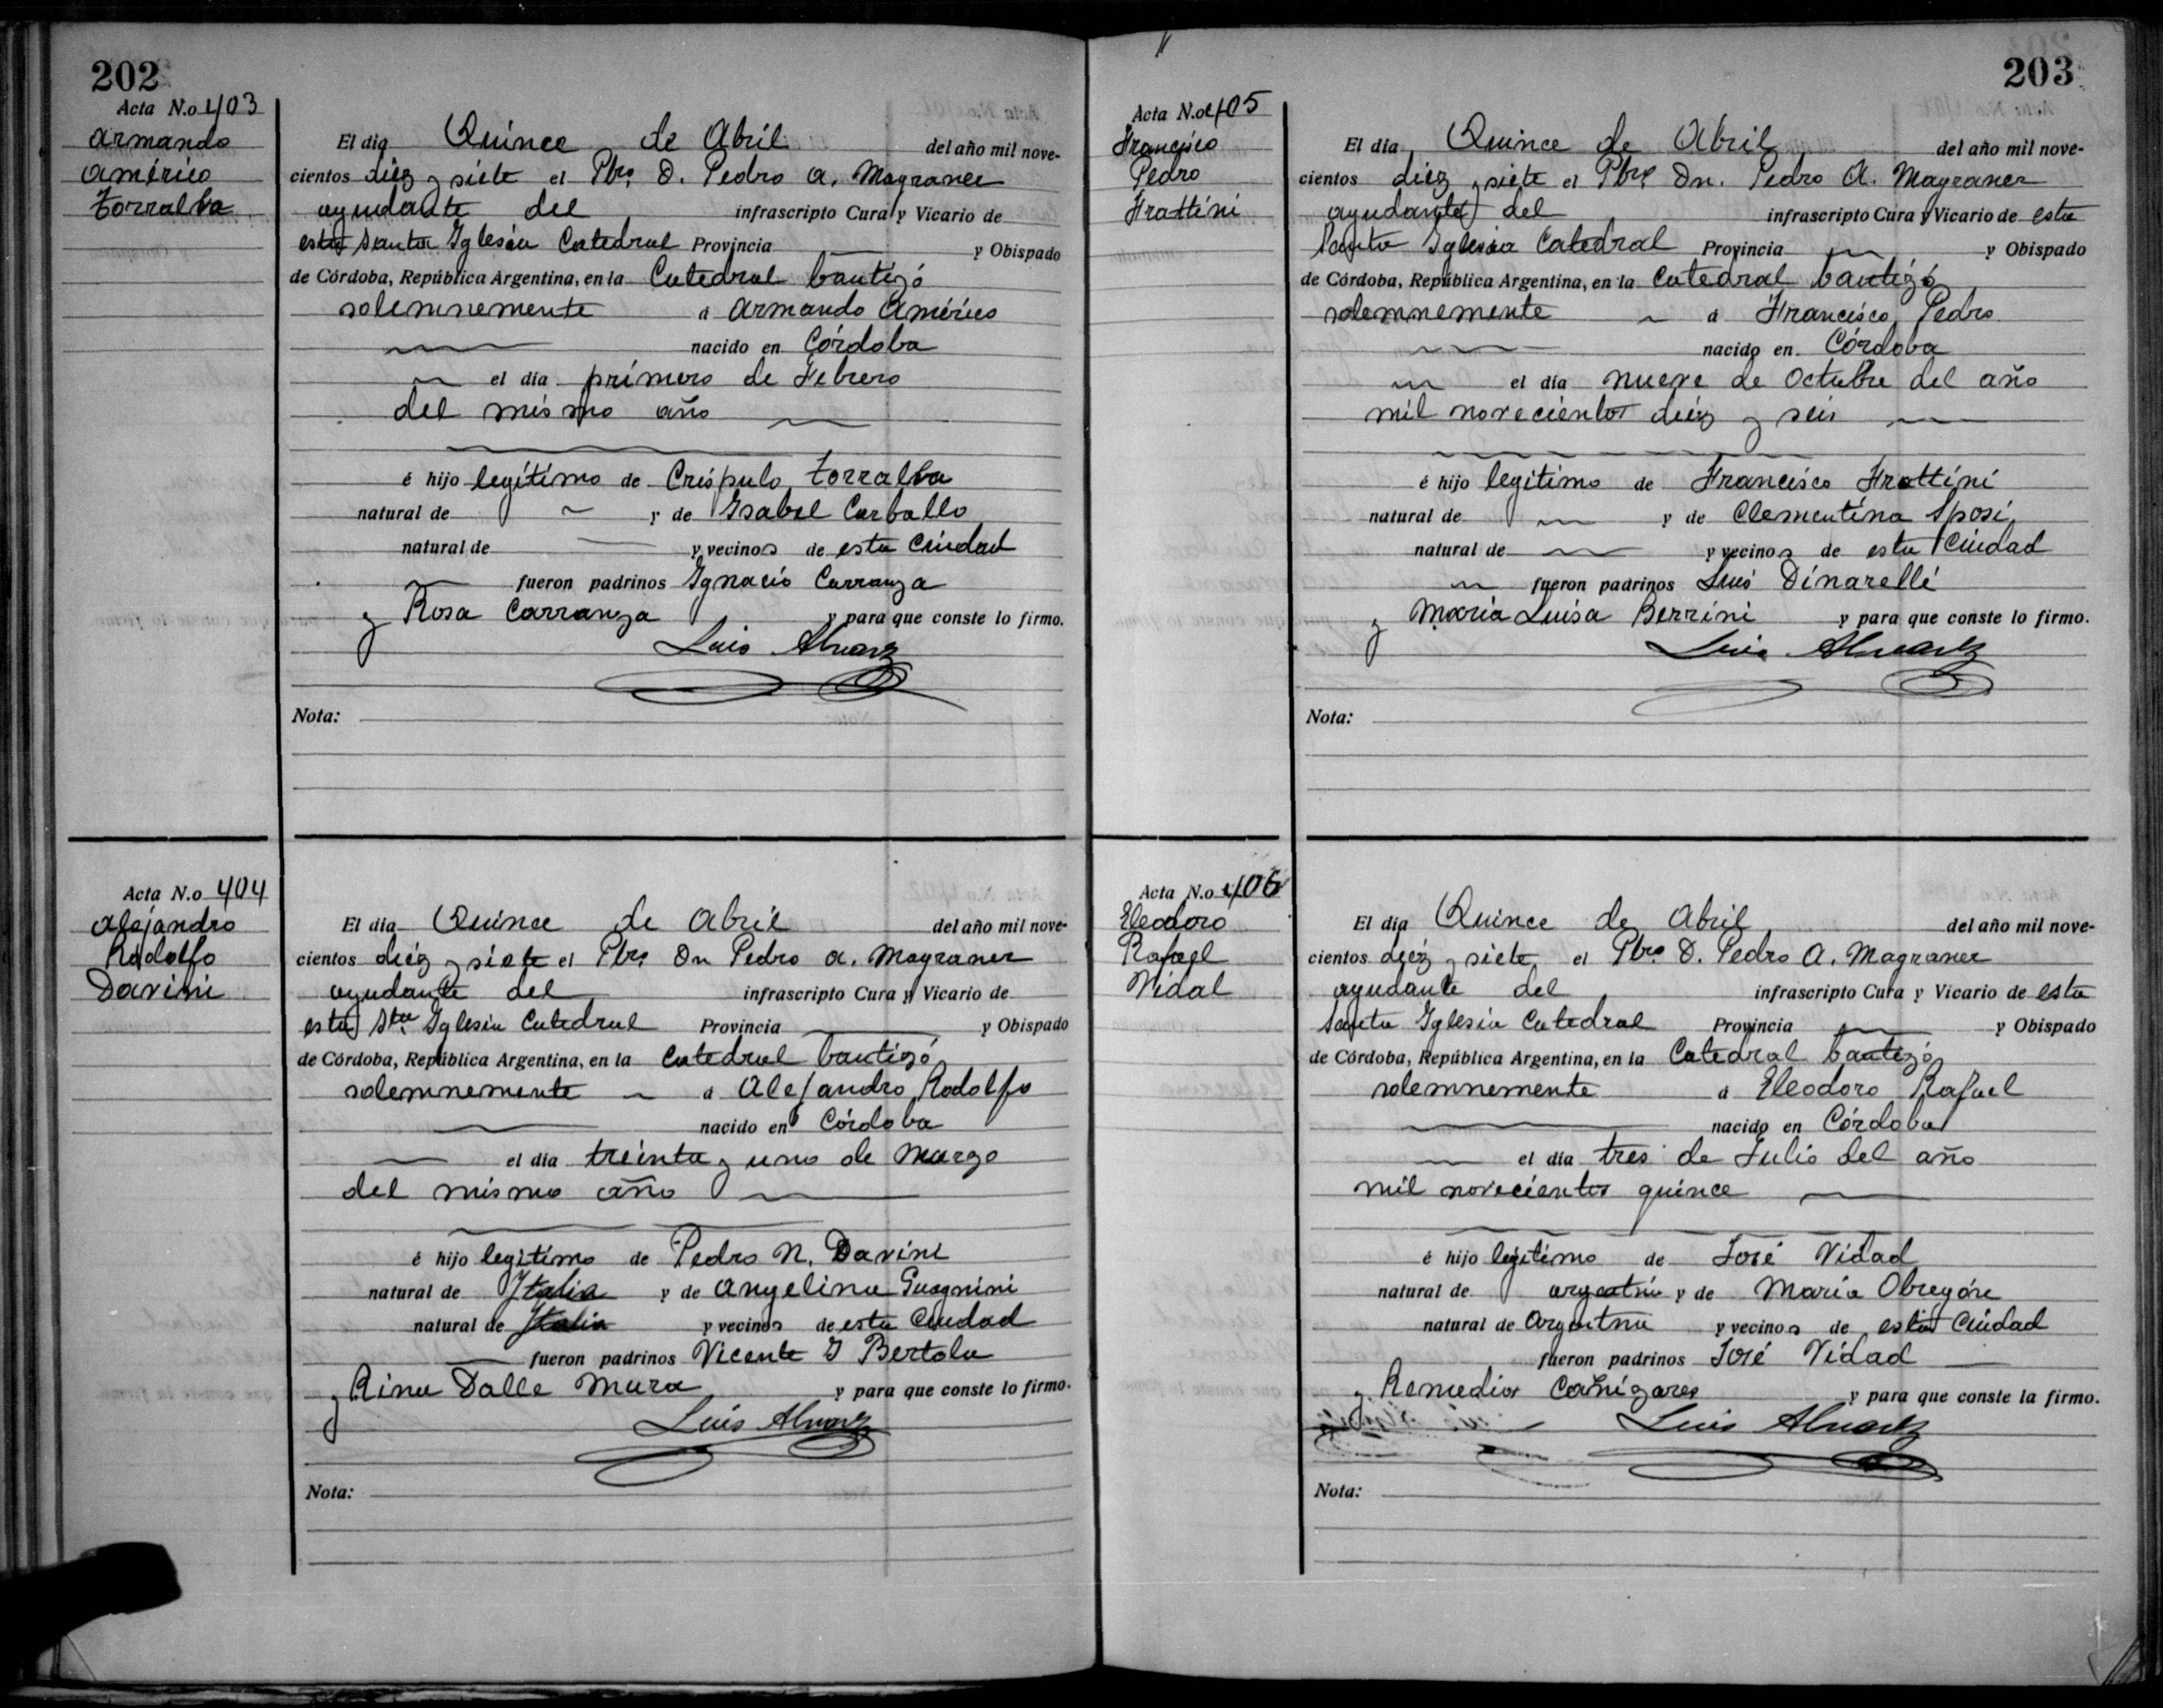 202
Acta N.o 403
Armando
Américo
Torralba
El dia Quince de Abril del año mil nove-
cientos diez y siete el Pbro. D. Pedro A. Magraner
ayudante del infrascripto Cura y Vicario de
esta Santa Iglesia Catedral Provincia y Obispado
de Córdoba, República Argentina, en la Catedral bautizó
solemnemente á Armando Américo
nacido en Córdoba
el dia primero de Febrero
del mismo año
é hijo legítimo de Críspulo Torralba
natural de y de Isabel Carballo
natural de y vecinos de esta Ciudad
fueron padrinos Ignacio Carranza
y Rosa Carranza y para que conste lo firmo.
Luis Alvarez
Nota:
Acta N.o 404
Alejandro
Rodolfo
Davini
El dia Quince de Abril del año mil nove-
cientos diez y siete el Pbro. Dn Pedro A. Magraner
ayudante del infrascripto Cura y Vicario de
esta Sta. Iglesia Catedral Provincia y Obispado
de Córdoba, República Argentina, en la Catedral bautizó
solemnemente á Alejandro Rodolfo
nacido en Córdoba
el dia treinta y uno de Marzo
del mismo año
é hijo legítimo de Pedro N. Davini
natural de Italia y de Angelina Guagnini
natural de Italia y vecinos de esta Ciudad
fueron padrinos Vicente J Bertola
y Rina Dalle Mura y para que conste lo firmo.
Luis Alvarez
Nota:
203
Acta N.o 405
Francisco
Pedro
Frattini
El dia Quince de Abril del año mil nove-
cientos diez y siete el Pbro. Dn. Pedro A. Magraner
ayudante del infrascripto Cura y Vicario de esta
Santa Iglesia Catedral Provincia y Obispado
de Córdoba, República Argentina, en la Catedral bautizó
solemnemente á Francisco Pedro
nacido en Córdoba
el dia nueve de Octubre del año
mil novecientos diez y seis
é hijo legitimo de Francisco Frattini
natural de y de Clementina Sposi
natural de y vecinos de esta Ciudad
fueron padrinos Luis Dinarelli
y María Luisa Berrini y para que conste lo firmo.
Luis Alvarez
Nota:
Acta N.o 406
Eleodoro
Rafael
Vidal
El dia Quince de Abril del año mil nove-
cientos diez y siete el Pbro. D. Pedro A. Magraner
ayudante del infrascripto Cura y Vicario de esta
Santa Iglesia Catedral Provincia y Obispado
de Córdoba, República Argentina, en la Catedral bautizó
solemnemente á Eleodoro Rafael
nacido en Córdoba
el dia tres de Julio del año
mil novecientos quince
é hijo legítimo de José Vidad
natural de argentina y de María Obregón
natural de Argentina y vecinos de esta Ciudad
fueron padrinos José Vidad
y Remedios Cañizares y para que conste la firmo.
Luis Alvarez
Nota: